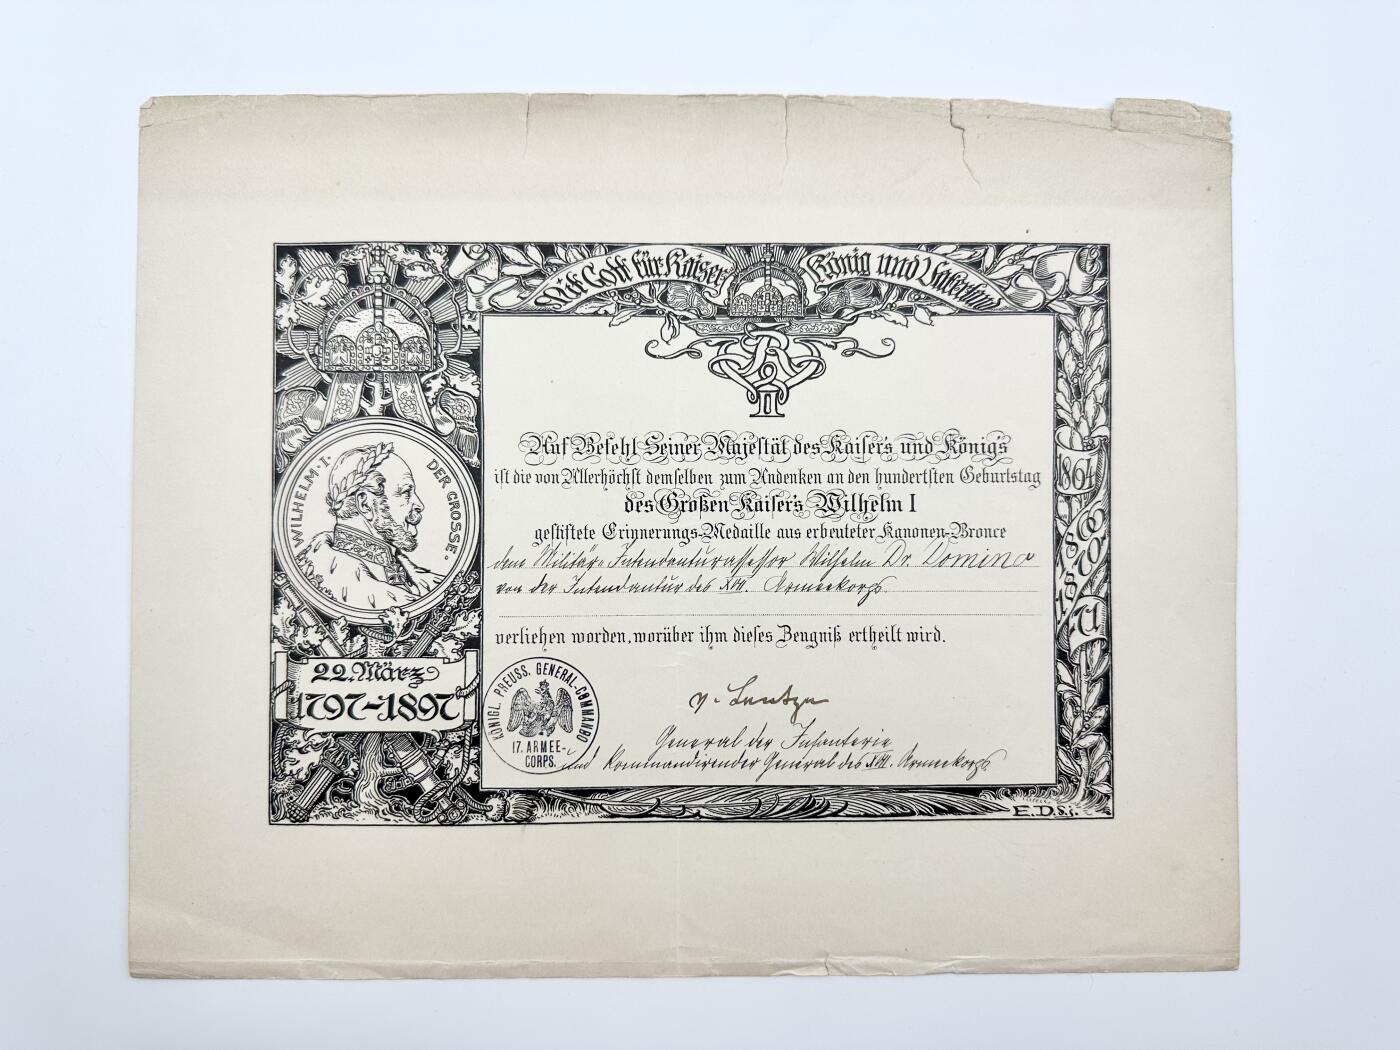 Mit Gott für Kaiser König und Vaterland
WILHELM · I · DER GROSSE ·
22. März
1797–1897
1864
1866
1870
71
W R II
Auf Befehl Seiner Majestät des Kaisers und Königs
ist die von Allerhöchst demselben zum Andenken an den hundertsten Geburtstag
des Großen Kaisers Wilhelm I
gestiftete Erinnerungs-Medaille aus erbeuteter Kanonen-Bronce
dem Militär-Intendanturassessor Wilhelm Dr. Domino
von der Intendantur des XVII. Armeekorps
verliehen worden, worüber ihm dieses Zeugniß ertheilt wird.
KÖNIGL. PREUSS. GENERAL-COMMANDO
17. ARMEE-
CORPS.
v. Lentze
General der Infanterie
und kommandirender General des XVII. Armeekorps.
E. D. d. j.